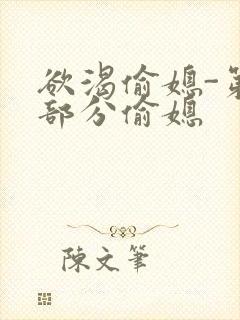 欲渴偷媳-第
部分偷媳
陳文筆